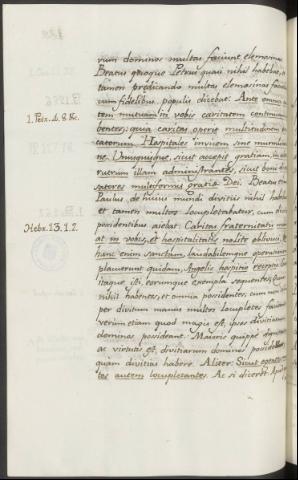 rum dominos multas faciunt elemosinas.
Beatus quoque Petrus quasi nihil habebat, et
tamen predicando multas elemosinas faciebat
cum fidelibus populis dicebat: Ante omnia au-
tem mutuam in vobis caritatem continuam ha-
bentes; quia caritas operit multitudinem pec-
catorum. Hospitales invicem sine murmuratio-
ne. Unusquisque, sicut accepit gratiam, in alte-
rutrum illam administrantes, sicut boni dispen-
satores multiformis gratiæ Dei. Beatus etiam
Paulus, de huius mundi divitiis nihil habebat
et tamen multos locupletabat, cum divitias
possidentibus aiebat: Caritas fraternitatis mane-
at in vobis, et hospitalitatis nolite oblivisci, per
hanc enim
placuerunt quidam, Angelis hospitio receptis.
itaque, isti, eorumque exempla sequentes,
nihil habentes, et omnia possidentes, cum non
per divitum manus multos locupletes faciunt
verum etiam quod magis est, ipsos divitiarum
dominos possident. Maioris quippe dignitatis
ac virtutis est, divitiarum dominos possidere
quam divitias habere. Aliter: Sicut egentes mul-
tos autem locupletantes. Ac si diceret:
1. Petr. 4. 8. &c.
Hebr. 13. 1. 2.